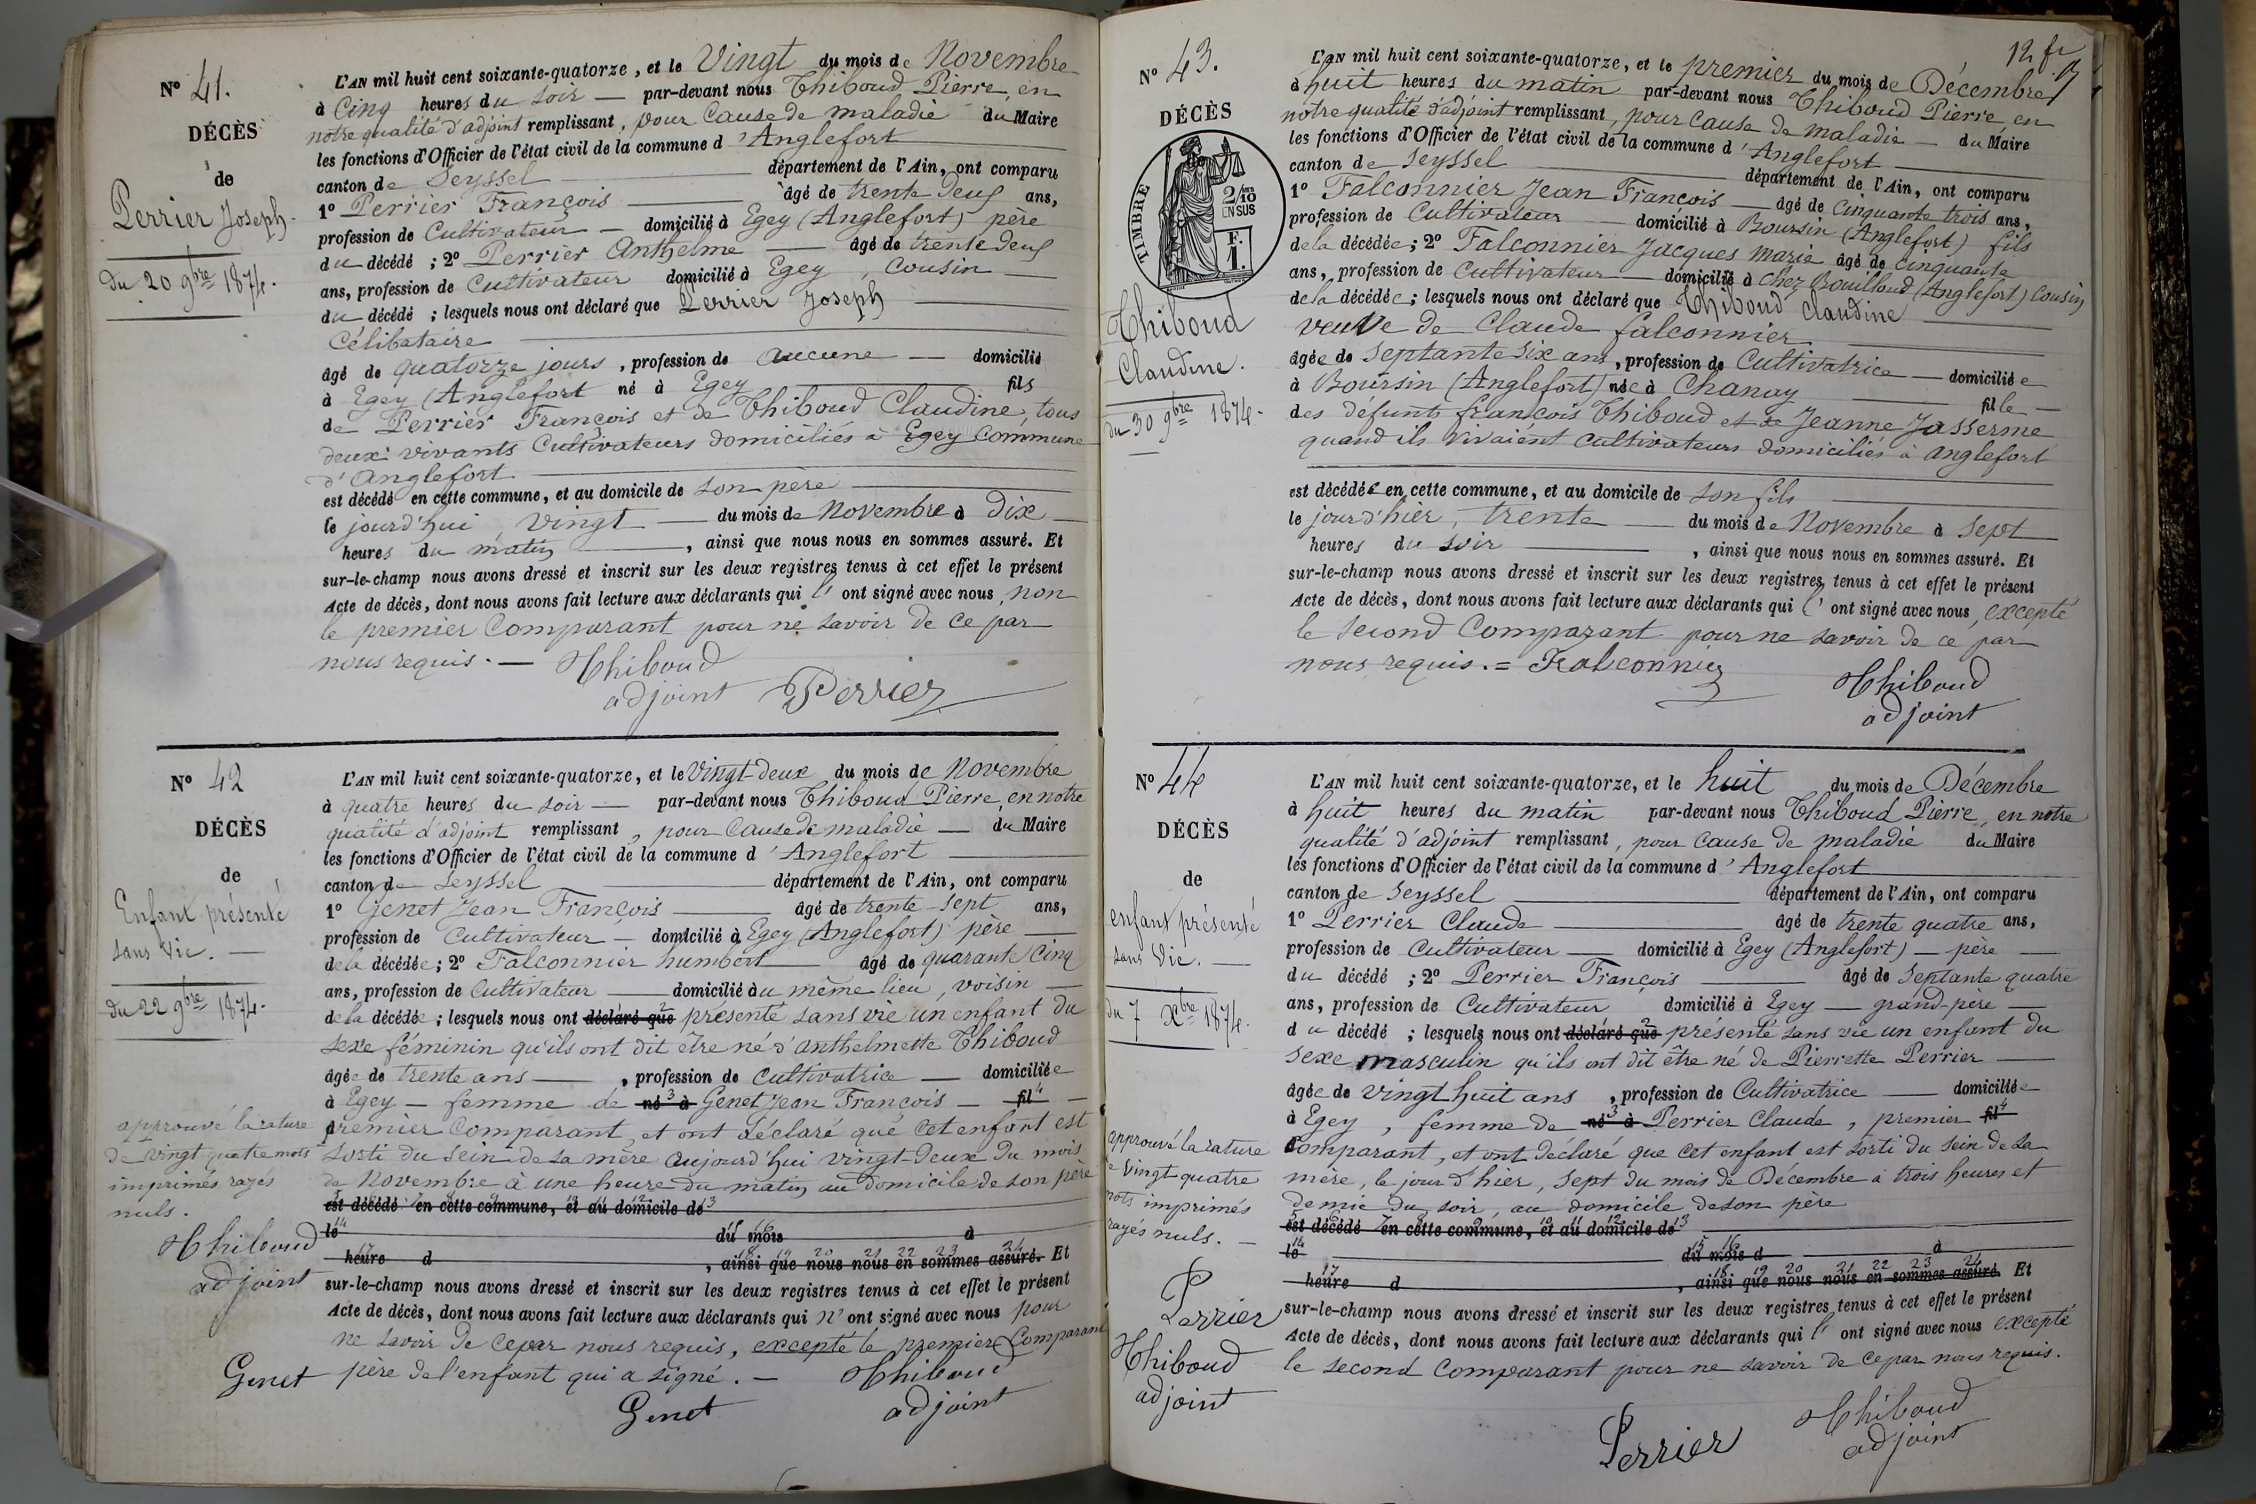 N° 41.
DÉCÈS
de
Perrier Joseph.
du 20 9bre 1874.
L'AN mil huit cent soixante-quatorze, et le Vingt du mois de Novembre
à Cinq heures du soir — par-devant nous Thiboud Pierre, en
notre qualité d'adjoint remplissant, pour Cause de maladie du Maire
les fonctions d'Officier de l'état civil de la commune d'Anglefort
canton de Seyssel — département de l'Ain, ont comparu
1° Perrier François — âgé de trente deux ans,
profession de Cultivateur — domicilié à Egey (Anglefort) père
du décédé ; 2° Perrier Anthelme — âgé de trente deux
ans, profession de Cultivateur domicilié à Egey, Cousin —
du décédé ; lesquels nous ont déclaré que Perrier Joseph
Célibataire
âgé de quatorze jours, profession de aucune — domicilié
à Egey (Anglefort né à Egey — fils
de Perrier François et de Thiboud Claudine, tous
deux vivants Cultivateurs domiciliés à Egey Commune
d'Anglefort
est décédé en cette commune, et au domicile de son père
le jourd'hui Vingt — du mois de Novembre à Dix —
heures du matin —, ainsi que nous nous en sommes assuré. Et
sur-le-champ nous avons dressé et inscrit sur les deux registres tenus à cet effet le présent
Acte de décès, dont nous avons fait lecture aux déclarants qui l' ont signé avec nous, non
le premier Comparant pour ne savoir de ce par
nous requis. — Thiboud
adjoint Perrier
N° 42
DÉCÈS
de
Enfant présenté
sans vie. —
du 22 9bre 1874.
L'AN mil huit cent soixante-quatorze, et le Vingt-deux du mois de Novembre
à quatre heures du soir — par-devant nous Thiboud Pierre, en notre
qualité d'adjoint remplissant, pour Cause de maladie — du Maire
les fonctions d'Officier de l'état civil de la commune d'Anglefort
canton de Seyssel — département de l'Ain, ont comparu
1° Genet Jean François — âgé de trente-sept ans,
profession de Cultivateur — domicilié à Egey (Anglefort) père —
de la décédée ; 2° Falconnier humbert — âgé de quarante cinq
ans, profession de Cultivateur — domicilié au même lieu, voisin —
de la décédée ; lesquels nous ont déclaré que 2 présenté sans vie un enfant du
sexe féminin qu'ils ont dit être né d'anthelmette Thiboud
âgée de trente ans —, profession de Cultivatrice — domiciliée
à Egey — femme de né 3 à Genet Jean François — fil 4 —
premier Comparant, et ont déclaré que cet enfant est
sorti du sein de sa mère aujourd'hui vingt-deux du mois
de Novembre à une heure du matin au domicile de son père
est décédé en cette commune, et au domicile de 13
le 14 du mois 16 à
heure 17 d , ainsi que nous nous en sommes assuré. Et
sur-le-champ nous avons dressé et inscrit sur les deux registres tenus à cet effet le présent
Acte de décès, dont nous avons fait lecture aux déclarants qui n' ont signé avec nous pour
ne savoir de ce par nous requis, excepté le premier Comparant
père de l'enfant qui a signé. — Thiboud
Genet adjoint
approuvé la rature
de vingt quatre mots
imprimés rayés
nuls.
Thiboud
adjoint
Genet
12 fr
N° 43.
DÉCÈS
TIMBRE
2/10
EN SUS
F.
1.
Thiboud
Claudine.
du 30 9bre 1874.
L'AN mil huit cent soixante-quatorze, et le premier du mois de Décembre
à huit heures du matin par-devant nous Thiboud Pierre, en
notre qualité d'adjoint remplissant, pour cause de maladie — du Maire
les fonctions d'Officier de l'état civil de la commune d'Anglefort
canton de Seyssel — département de l'Ain, ont comparu
1° Falconnier Jean François — âgé de cinquante trois ans,
profession de Cultivateur — domicilié à Boursin (Anglefort) fils
de la décédée ; 2° Falconnier Jacques Marie âgé de cinquante
ans, profession de Cultivateur — domicilié à Chez Bouilloud (Anglefort) Cousin
de la décédée ; lesquels nous ont déclaré que Thiboud Claudine
veuve de Claude falconnier
âgée de septante six ans, profession de Cultivatrice — domiciliée
à Boursin (Anglefort) née à Chanay — fille —
des défunts françois Thiboud et de Jeanne Jasserme
quand ils vivaient cultivateurs domiciliés à anglefort
est décédée en cette commune, et au domicile de son fils
le jour d'hier, trente — du mois de Novembre à Sept
heures du soir —, ainsi que nous nous en sommes assuré. Et
sur-le-champ nous avons dressé et inscrit sur les deux registres tenus à cet effet le présent
Acte de décès, dont nous avons fait lecture aux déclarants qui l' ont signé avec nous, excepté
le second Comparant pour ne savoir de ce par
nous requis. = Falconnier
Thiboud
adjoint
N° 44
DÉCÈS
de
enfant présenté
sans vie. —
du 7 Xbre 1874.
L'AN mil huit cent soixante-quatorze, et le huit du mois de Décembre
à huit heures du matin par-devant nous Thiboud Pierre, en notre
qualité d'adjoint remplissant, pour cause de maladie du Maire
les fonctions d'Officier de l'état civil de la commune d'Anglefort
canton de Seyssel — département de l'Ain, ont comparu
1° Perrier Claude — âgé de trente quatre ans,
profession de Cultivateur — domicilié à Egey (Anglefort) — père —
du décédé ; 2° Perrier François — âgé de septante quatre
ans, profession de Cultivateur domicilié à Egey — grand-père —
du décédé ; lesquels nous ont déclaré que 2 présenté sans vie un enfant du
sexe masculin qu'ils ont dit être né de Pierrette Perrier —
âgée de vingt huit ans, profession de Cultivatrice — domiciliée
à Egey, femme de né 3 à Perrier Claude, premier fil 4
Comparant, et ont déclaré que cet enfant est sorti du sein de sa
mère, le jour d'hier, sept du mois de Décembre à trois heures et
demie du soir, au domicile de son père
est décédé en cette commune, et au domicile de 13
le 14 du mois d 15 16 à
heure 17 d , ainsi que nous nous en sommes assuré. Et
sur-le-champ nous avons dressé et inscrit sur les deux registres tenus à cet effet le présent
Acte de décès, dont nous avons fait lecture aux déclarants qui l' ont signé avec nous excepté
le second Comparant pour ne savoir de ce par nous requis.
Perrier
Thiboud
adjoint
approuvé la rature
de vingt quatre
mots imprimés
rayés nuls. —
Perrier
Thiboud
adjoint